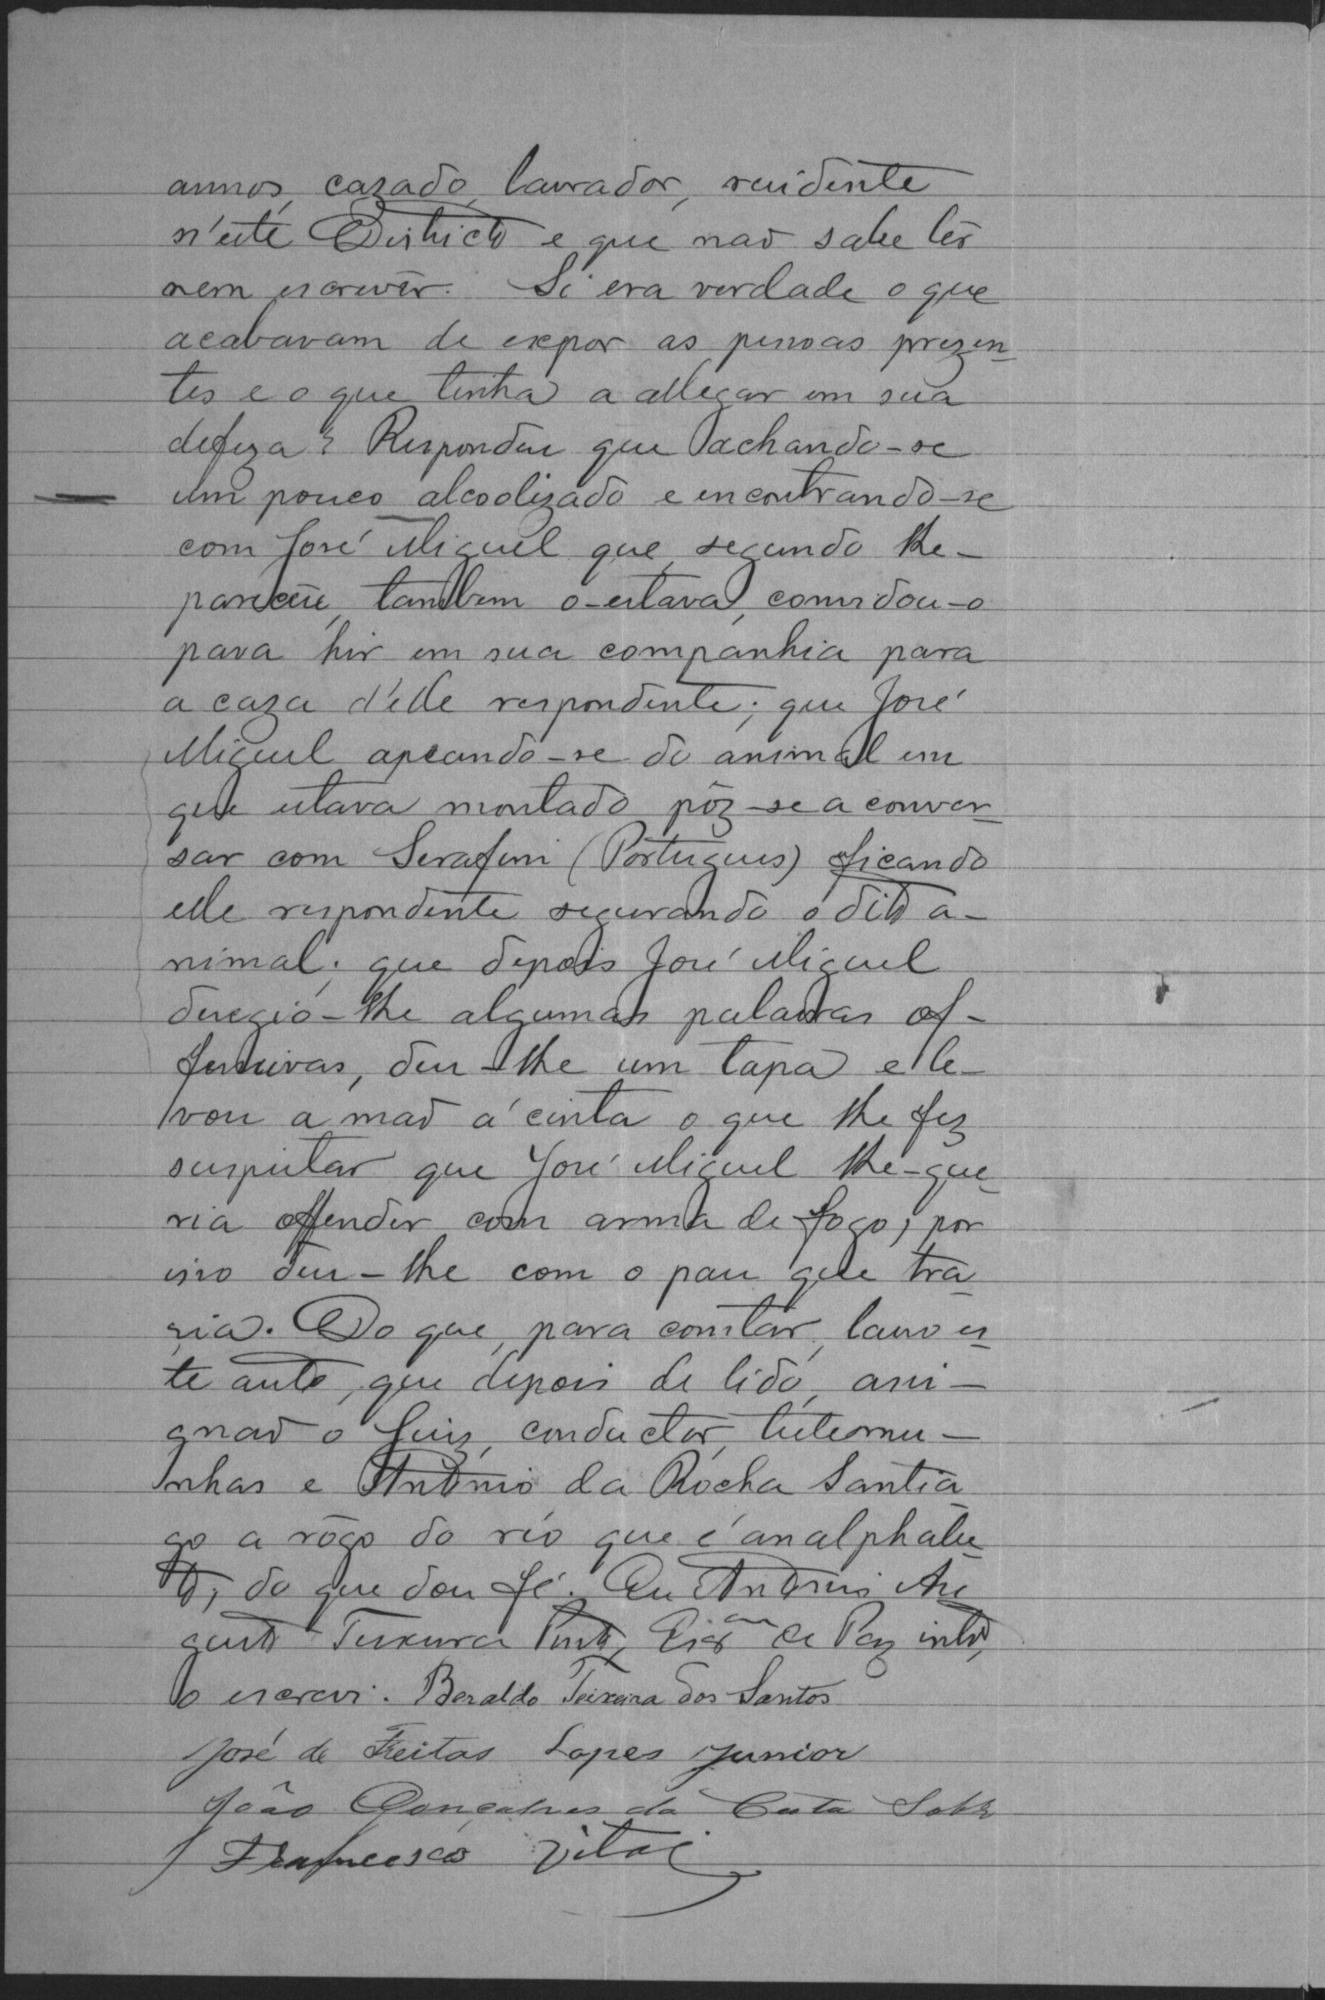 annos, cazado, lavrador, residente
n'este Districto e que não sabe lêr
nem escrever. Si era verdade o que
acabavam de expor as pessoas prezen-
tes e o que tinha a allegar em sua
defeza? Respondeu que achando-se
um pouco alcoolizado e encontrando-se
com José Miguel que, segundo lhe-
pareceu, tambem o-estava, convidou-o
para hir em sua companhia para
a caza d'elle respondente; que José
Miguel apeando-se do animal em
que estava montado pôz-se a conver-
sar com Serafim (Portugues) ficando
elle respondente segurando o dito a-
nimal; que depois José Miguel
deregio-lhe algumas palavras of-
fensivas, deu-lhe um tapa e le-
vou a mão á cinta o que lhe fez
suspeitar que José Miguel lhe-que-
ria offender com arma de fogo, por
isso deu-lhe com o pau que tra-
zia. Do que, para constar, lavro es-
te auto, que depois de lido, assi-
gnão o Juiz, conductor, testemu-
nhas e Antonio da Rocha Santia
go a rôgo do réo que é analphabe-
to, do que dou fé. Eu Antonio
Teixeira Pinto, Escr.am de Paz into,
o escrevi. Beraldo Teixeira dos Santos
José de Freitas Lopes Junior
João Gonçalves da Costa
Francesco Vitai